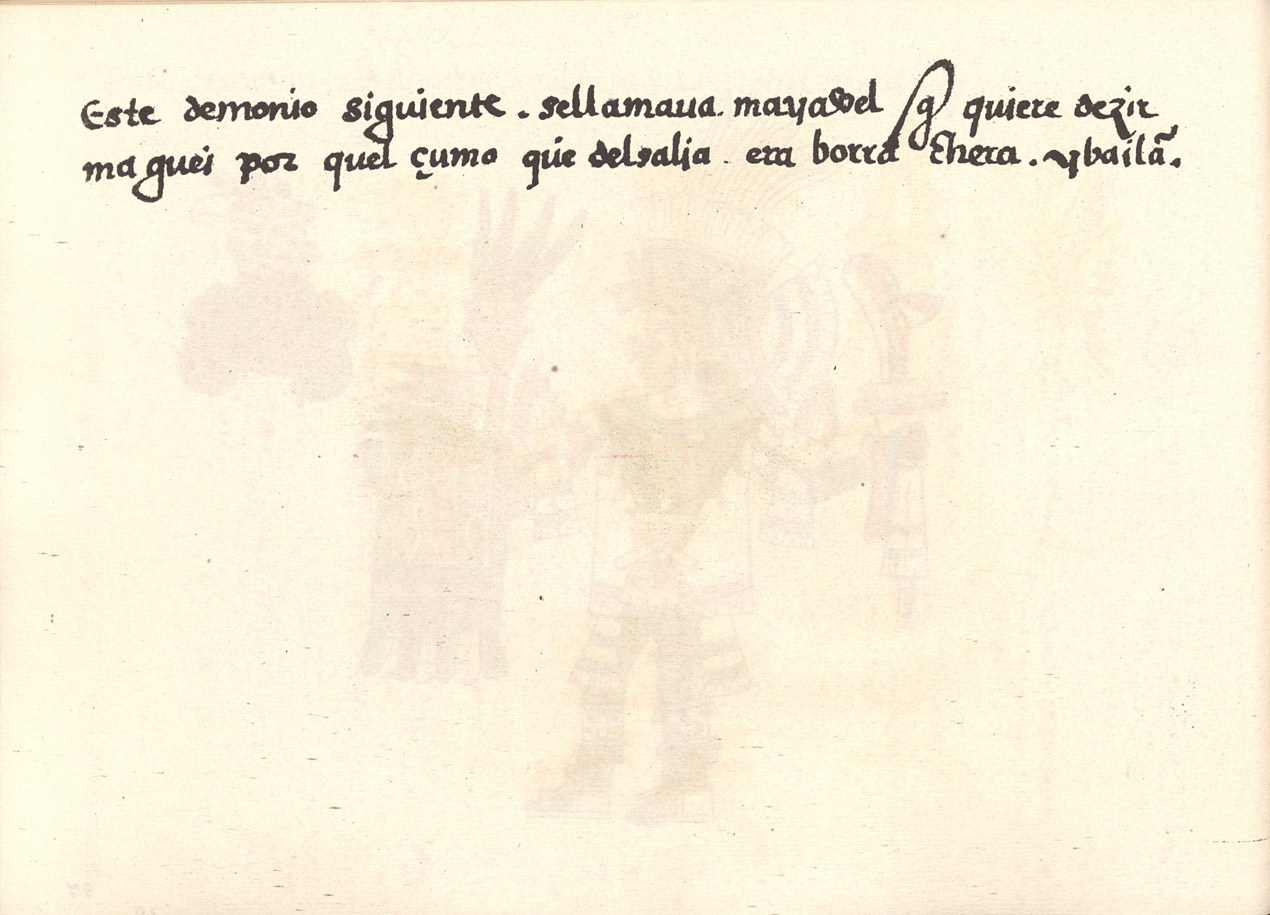 Este demonio siguiente . sellamaua. mayaవel q̃ quiere dezir
maguei por quel çumo que delsalia . era borra chera . y bailã.